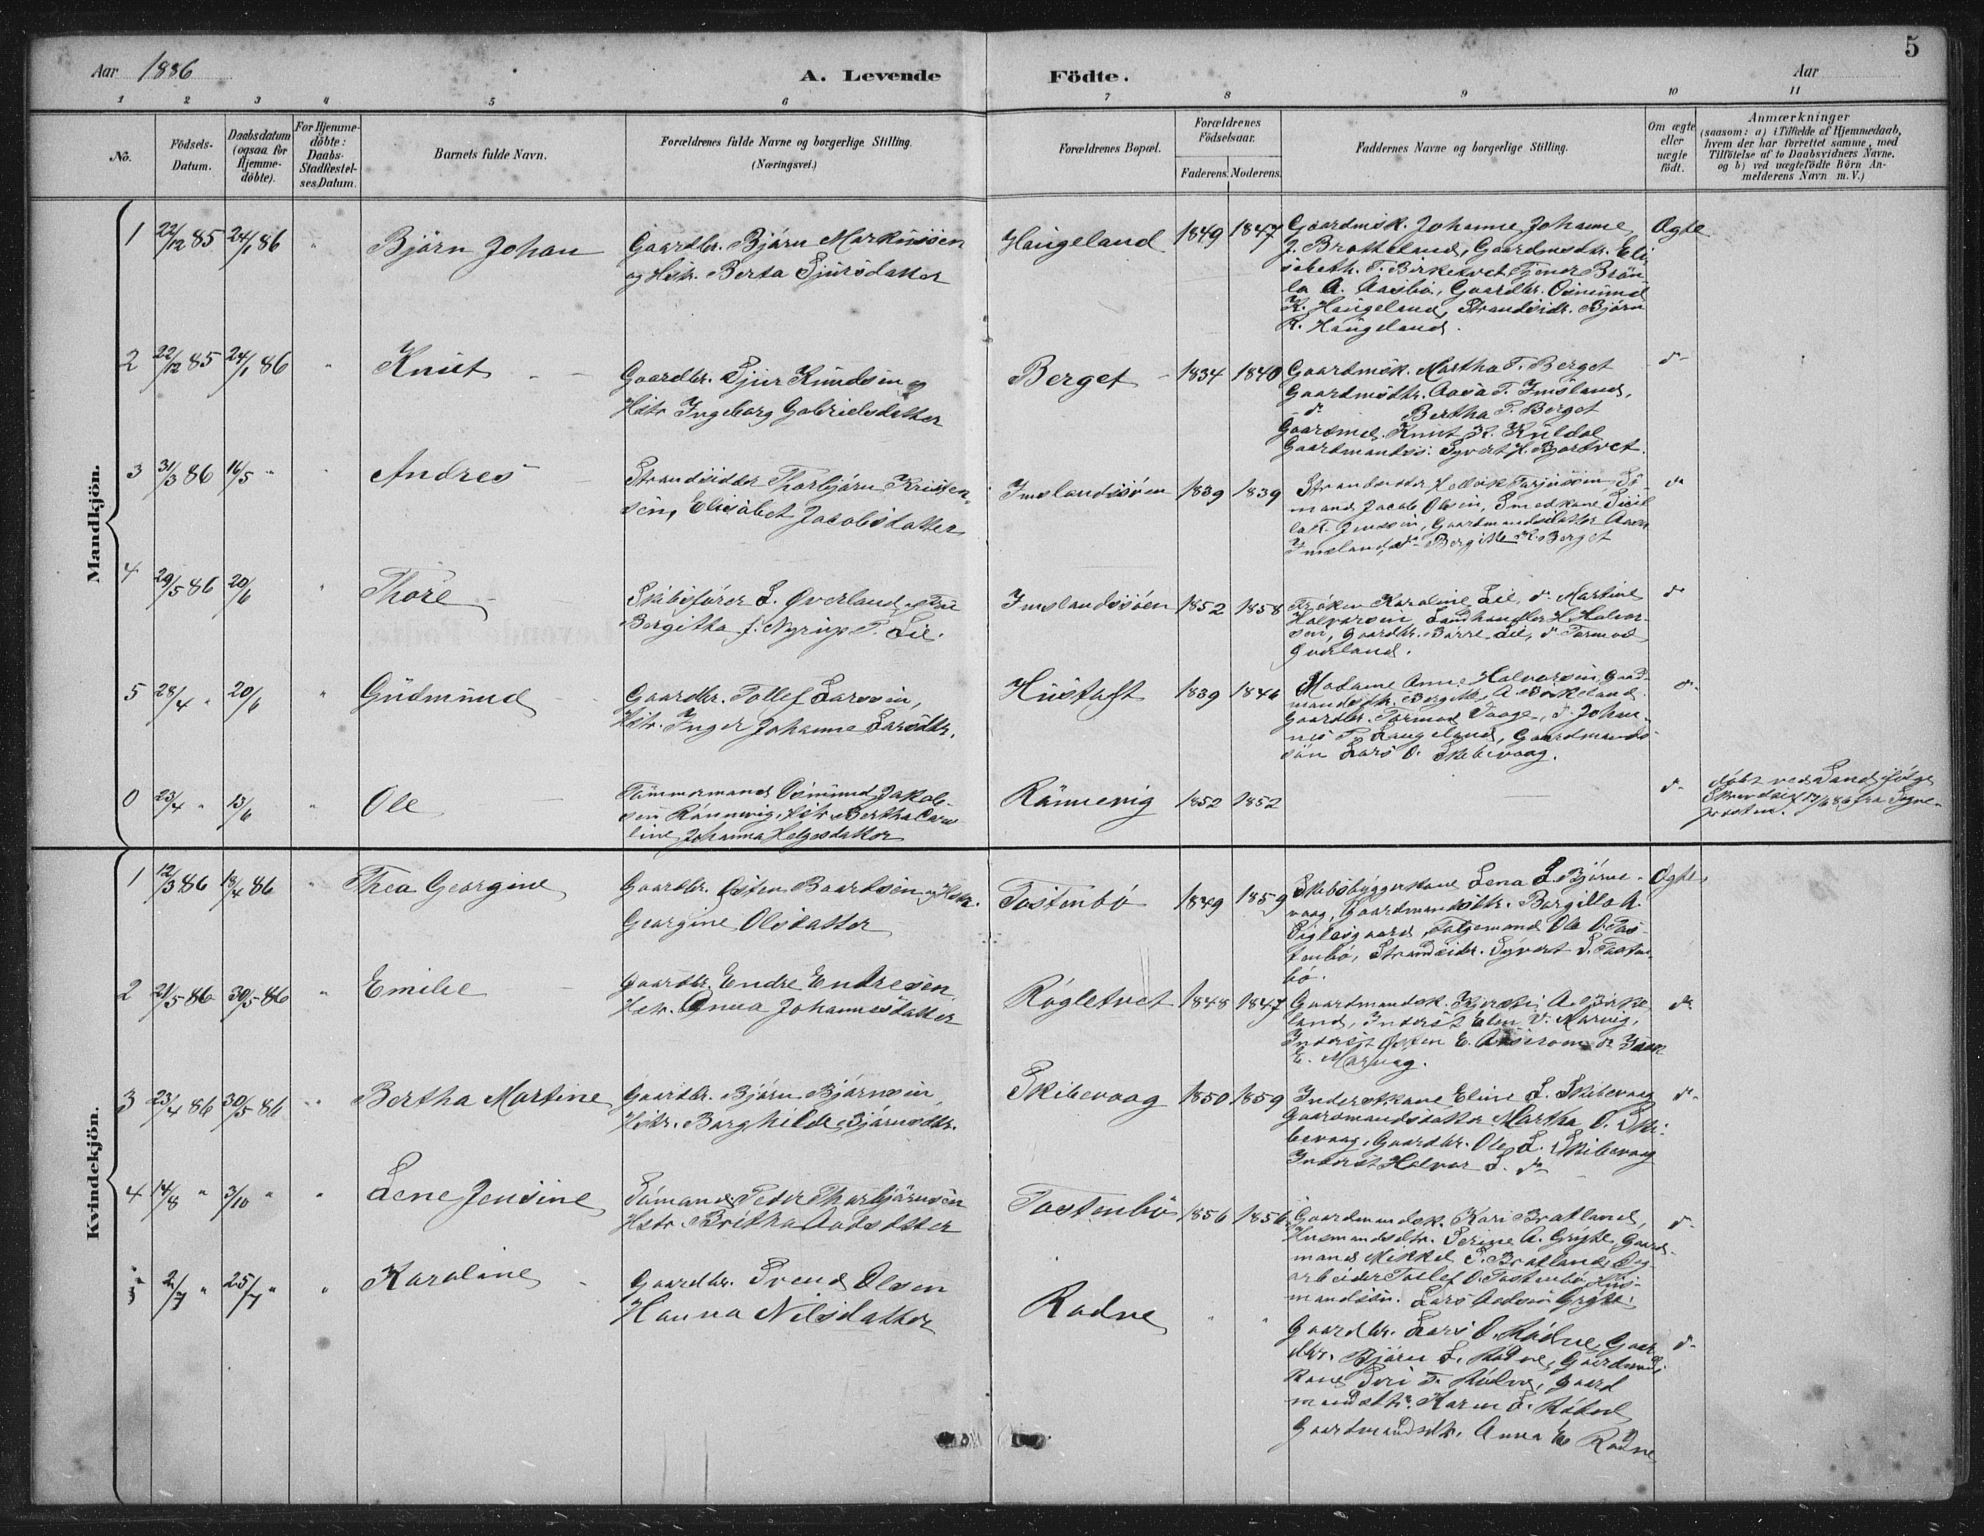 Aar 1886
A. Levende Fødte.
Aar
5
1 2 3 4 5 6 7 8 9 10 11
No.
Födsels-Datum.
Daabsdatum (ogsaa for Hjemme-döbte).
For Hjemme-döbte: Daabs-Stadfæstelses Datum.
Barnets fulde Navn.
Forældrenes fulde Navne og borgerlige Stilling.
(Næringsvei.)
Forældrenes Bopæl.
Forældrenes Födselsaar.
Faderens. Moderens.
Faddernes Navne og borgerlige Stilling.
Om ægte eller uægte födt.
Anmærkninger
(saasom: a) i Tilfælde af Hjemmedaab,
hvem der har forrettet samme, med
Tilföielse af to Daabsvidners Navne,
og b) ved uægtefödte Börn An-
melderens Navn m. V.)
Mandkjön.
1 22/12 85 24/1 86 " Bjørn Johan
Gaardbr. Bjørn Markussen
og Hstr. Berta Sjursdatter
Haugeland 1849 1847
Gaardmsk. Johanne Johanne
J. Bratteland, Gaardmdtr. Eli-
sabeth T. Birketvet, Tjener
A. Aasbø, Gaardbr. Osmund
K. Haugeland, Strandsidr. Bjørn
K. Haugeland.
Ægte
2 22/12 85 24/1 86 " Knut
Gaardbr. Sjur Knudsen og
Hstr Ingeborg Gabrielsdatter
Berget 1834 1840
Gaardmsk. Martha T. Berget
Gaardmsdtr. Aasa T. Imsland,
do Bertha T. Berget
Gaardmd. Knut K. Kuldal
Gaardmandss. Syvert H. Bjortvet.
do
3 31/3 86 16/5 " " Andres
Strandsidder Thorbjørn Kristen-
sen, Elisabet Jacobsdatter
Imslandssøen 1839 1839
Strandsidder Terjesen, Sø-
mand Jacob Olsen, Smedkone
Jensen, Gaardmandsdatter
Imsland, do Bergitte K. Berget
do
4 29/5 86 20/6 " Thore
Skibsfører L. Øverland, Fru
Bergitha f. Nyrup T. Lie.
Imslandssøen 1852 1858
Frøken Karoline Lie, do Martine
Halvorsen, Landhandler H. Halvor-
sen, Gaardbr. Børre Lie, do Tormod
Øverland.
do
5 28/4 " 20/6 " Gudmund
Gaardbr. Tollef Larsen,
Hstr. Inger Johanne Larsdtr.
Hustoft 1839 1846
Madame Anne Halvorsen, Gaard-
mandsdtr. Bergitte A. Birkeland
Gaardbr. Tormod Vaage, do Johan-
nes T. Laugeland, Gaardmands-
søn Lars O. Skibevaag.
do
0 23/4 " 13/6 " Ole
Tømmermand Osmund Jakob-
sen Rønnevig, Hstr. Bertha Caro-
line Johanna Helgesdatter
Rønnevig 1852 1852
do
døbt ved Sand ifølge
fra Sogne-
præsten.
Kvindekjön.
1 12/3 86 18/4 86 " Thea Georgine
Gaardbr. Østen Baardsen og Hstr.
Georgine Olsdatter
Tostenbø 1849 1859
Skibsbyggerkone Lena L. Bjørne-
vaag, Gaardmandsdtr. Bergitta A.
Følgemand Ole O. Tos-
tenbø, Strandsidr. Syvert S. Tosten-
bø.
Ægte
2 21/5 86 30/5 86 " Emilie
Gaardbr. Endre Endresen
Hstr. Anna Johannesdatter
Røgletvet 1848 1847
Gaardmandsk. A. Birke-
land, Inderst Elen V. Marvig,
Inderst E.
E. Marvag.
do
3 23/4 86 30/5 86 " Bertha Martine
Gaardbr. Bjørn Bjørnsen,
Hstr. Borghilde Bjørnsdtr.
Skibevaag 1850 1859
Inderstkone Eline L. Skibevaag
Gaardmandsdatter Martha O. Ski-
bevaag, Gaardbr. Ole L. Skibevaag
Inderst Halvor L. do
do
4 14/8 " 3/10 " " Lene Jensine
Sømand Peder Thorbjørnsen
Hstr. Britha Aadsdatter
Tostenbø 1856 1856
Gaardmandsk. Kari Bratland,
Husmandsdtr. Serine A. Gryte, Gaard-
mand Mikkel P. Bratland, Dag-
arbeider Tollef O. Tostenbø, Hus-
mandssøn. Lars Aadsen Grytte.
do
5 2/7 " 25/7 " " Karoline
Gaardbr. Svend Olsen
Hanna Nilsdatter
Rødne " "
Gaardbr. Lars O. Rødne, Gaard-
br. Bjørn L. Rødne, Gaardmands-
kone Siri T. Rødne, Gaard-
mandsdtr. Karen L. Rødne
Gaardmandsdtr. Anna E. Rødne
do